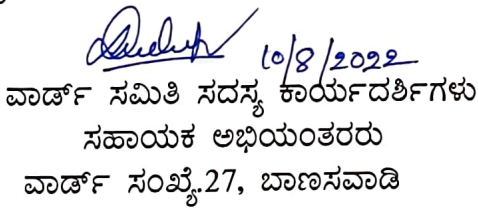 10/8/2022
ವಾರ್ಡ್ ಸಮಿತಿ ಸದಸ್ಯ ಕಾರ್ಯದರ್ಶಿಗಳು
ಸಹಾಯಕ ಅಭಿಯಂತರರು
ವಾರ್ಡ್ ಸಂಖ್ಯೆ.27, ಬಾಣಸವಾಡಿ